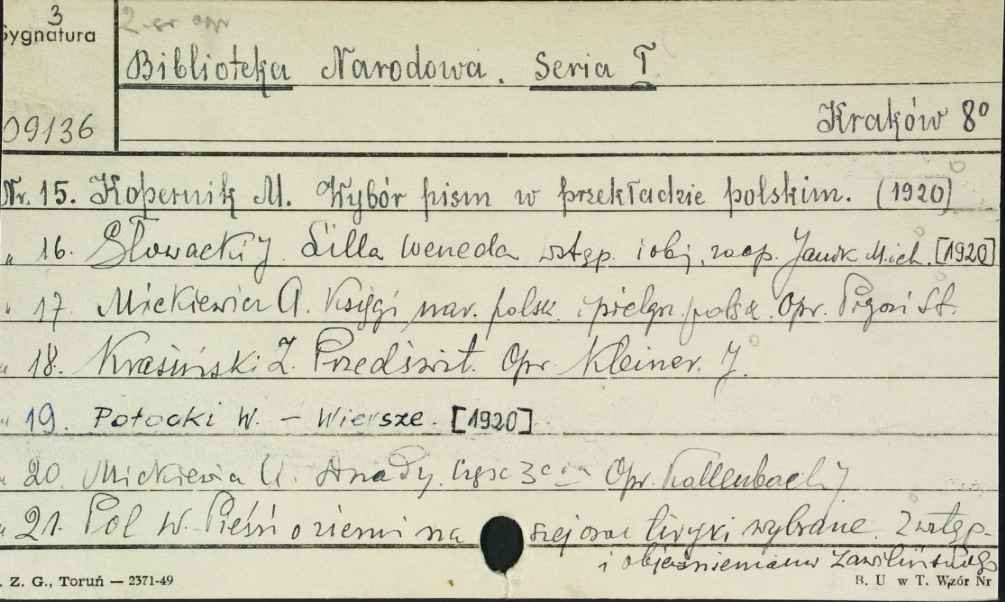 3
Sygnatura
2 gr opr
Biblioteka Narodowa. Seria I.
09136
Kraków 8°
Nr. 15. Kopernik M. Wybór pism w przekładzie polskim. (1920)
„ 16. Słowacki J. Lilla Weneda wstęp. i obj. zaop. Janik Mich. [1920]
„ 17. Mickiewicz A. Księgi nar. polsk. i pielgr. polsk. Opr. Pigoń St.
„ 18. Krasiński Z. Przedświt. Opr. Kleiner. J.
„ 19. Potocki W. – Wiersze. [1920]
„ 20. Mickiewicz A. Dziady. Część 3cia Opr. Kallenbach J
„ 21. Pol W. Pieśń o ziemi naszej oraz liryki wybrane. Z wstęp.
i objaśnieniami Zawilińskiego
. Z. G., Toruń — 2371-49
B. U w T. Wzór Nr